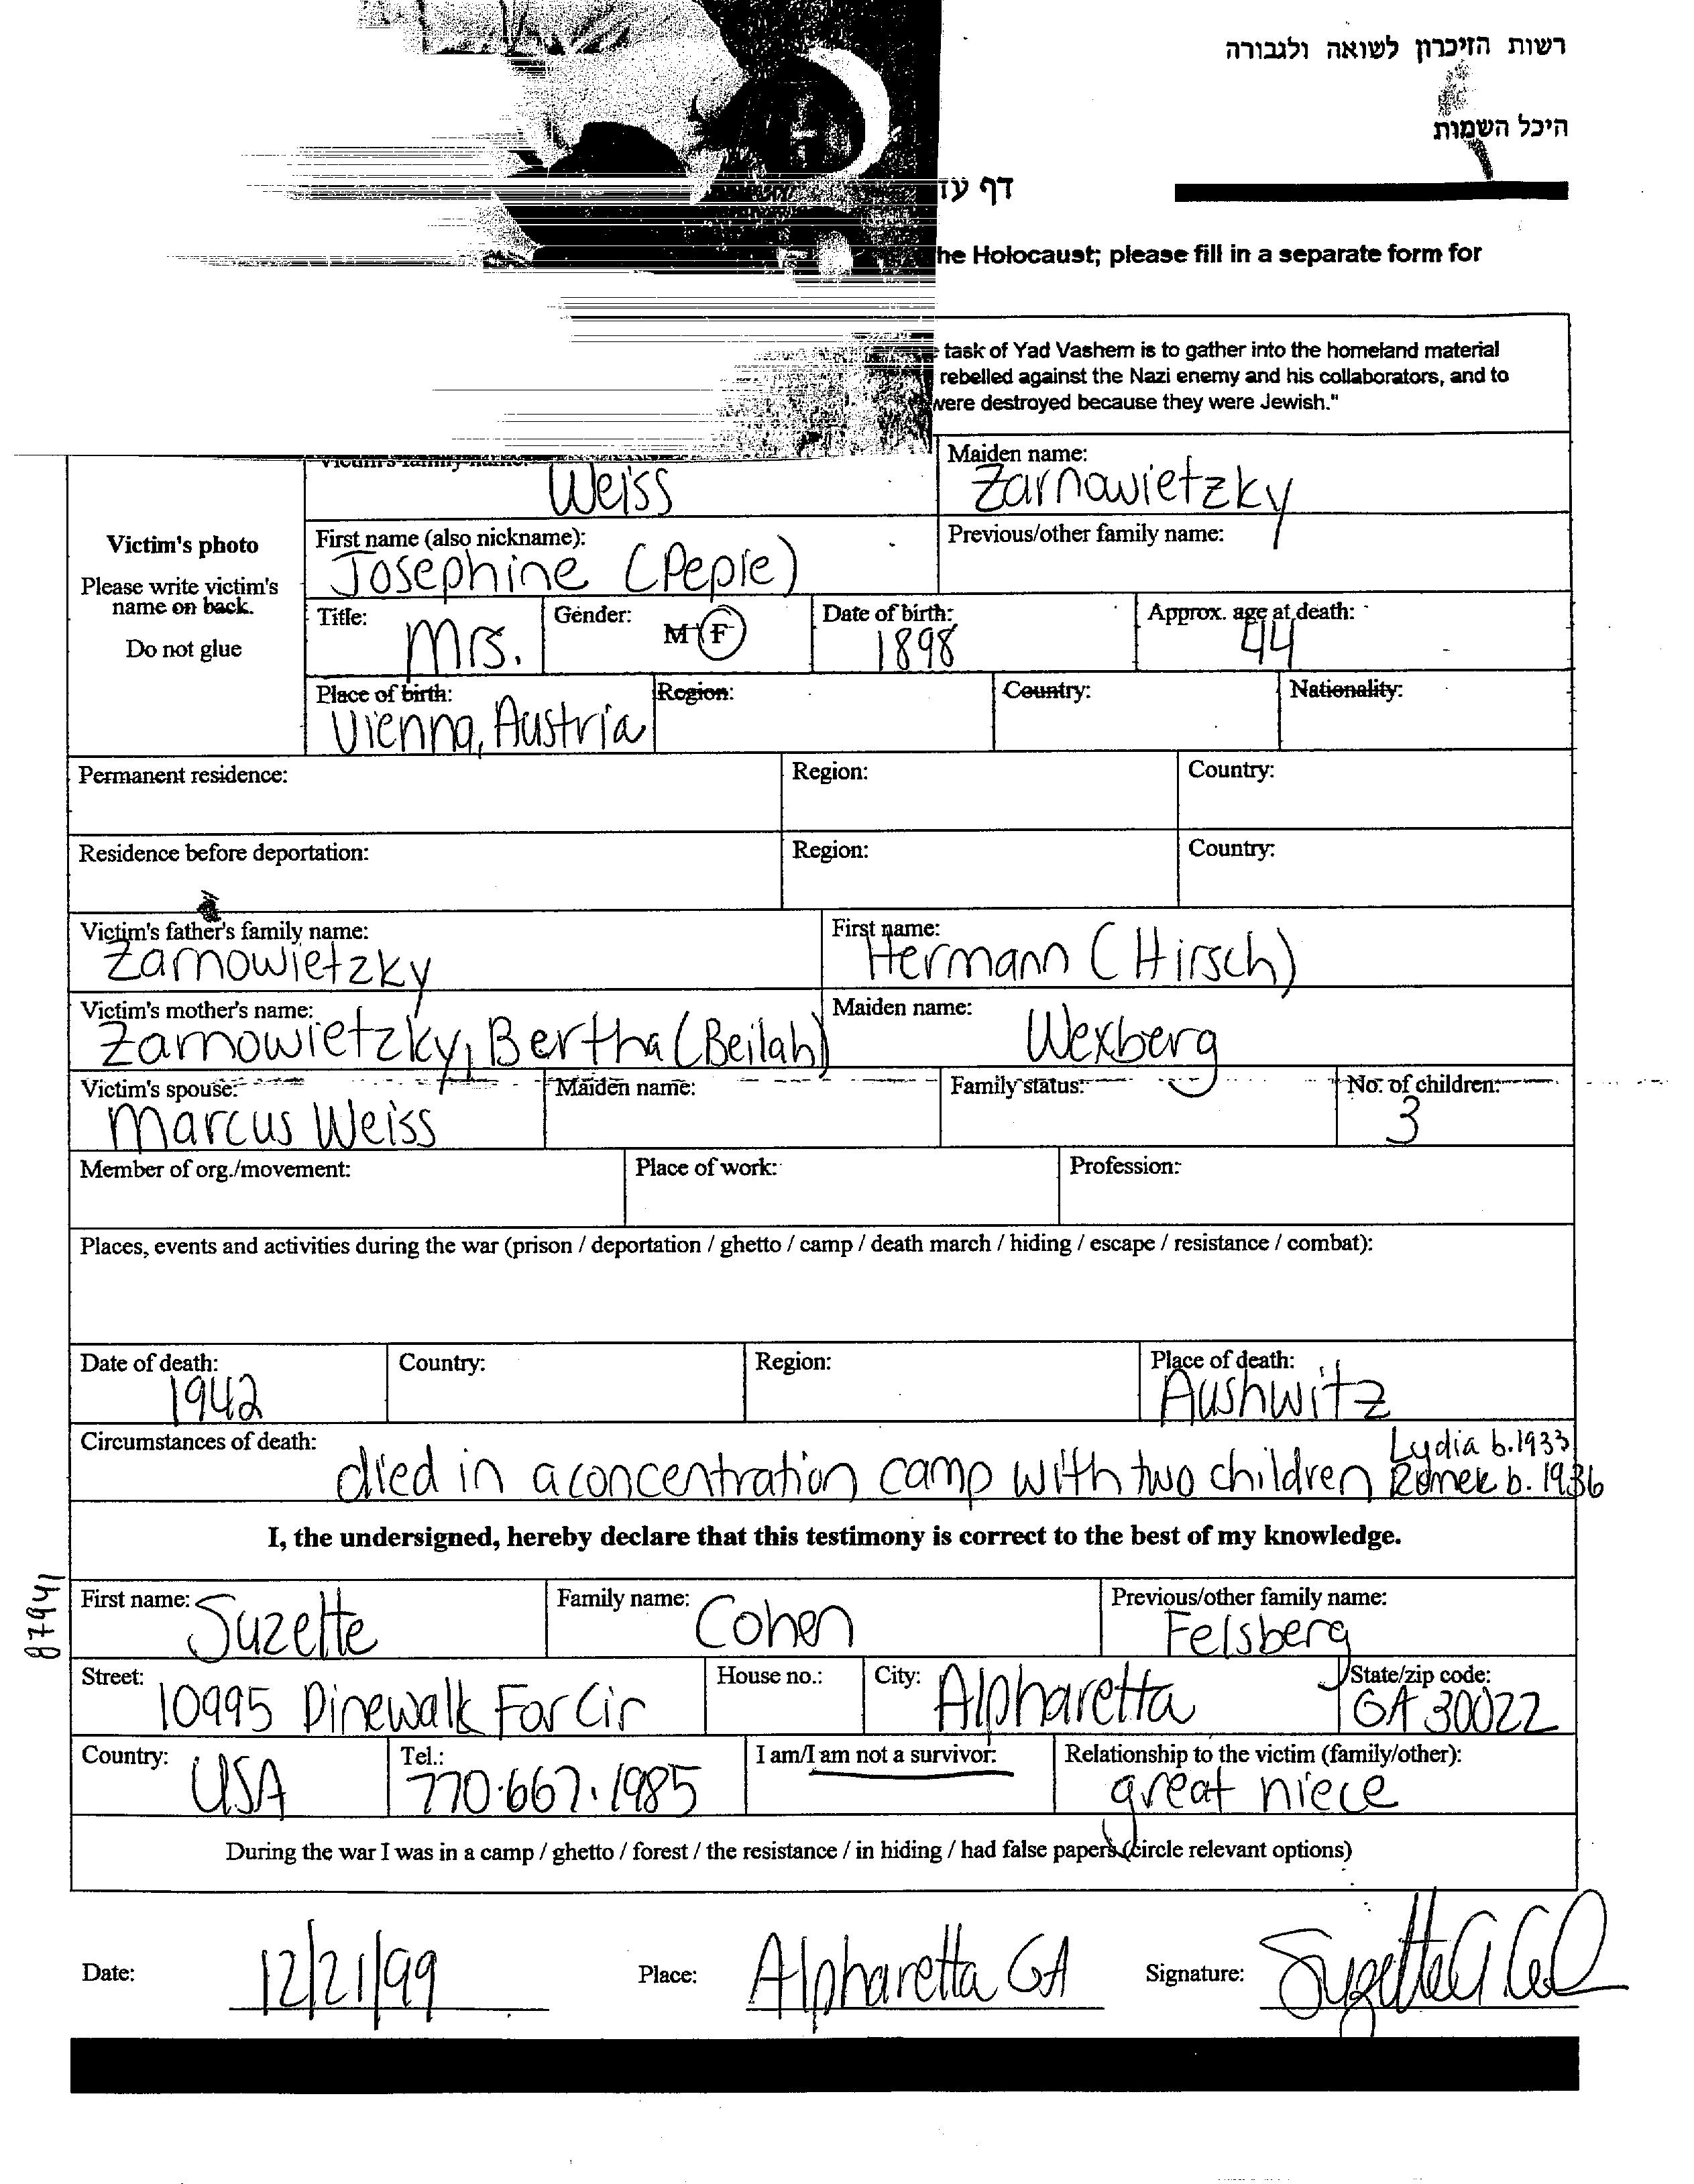 רשות הזיכרון לשואה ולגבורה
היכל השמות
דף עד
he Holocaust; please fill in a separate form for
task of Yad Vashem is to gather into the homeland material
rebelled against the Nazi enemy and his collaborators, and to
were destroyed because they were Jewish."
Victim's family name: Weiss
Maiden name: Zarnowietzky
Victim's photo
Please write victim's
name on back.
Do not glue
First name (also nickname): Josephine (Pepie)
Previous/other family name:
Title: Mrs.
Gender: M F
Date of birth: 1898
Approx. age at death: 44
Place of birth: Vienna, Austria
Region:
Country:
Nationality:
Permanent residence:
Region:
Country:
Residence before deportation:
Region:
Country:
Victim's father's family name: Zarnowietzky
First name: Hermann (Hirsch)
Victim's mother's name: Zarnowietzky, Bertha (Beilah)
Maiden name: Wexberg
Victim's spouse: Marcus Weiss
Maiden name:
Family status:
No. of children: 3
Member of org./movement:
Place of work:
Profession:
Places, events and activities during the war (prison / deportation / ghetto / camp / death march / hiding / escape / resistance / combat):
Date of death: 1942
Country:
Region:
Place of death: Aushwitz
Circumstances of death: died in a concentration camp with two children Lydia b.1933
Romek b. 1936
I, the undersigned, hereby declare that this testimony is correct to the best of my knowledge.
87941
First name: Suzette
Family name: Cohen
Previous/other family name: Felsberg
Street: 10995 Pinewalk For Cir
House no.:
City: Alpharetta
State/zip code: GA 30022
Country: USA
Tel.: 770.667.1985
I am/I am not a survivor:
Relationship to the victim (family/other): great niece
During the war I was in a camp / ghetto / forest / the resistance / in hiding / had false papers (circle relevant options)
Date: 12/21/99
Place: Alpharetta GA
Signature: Suzette